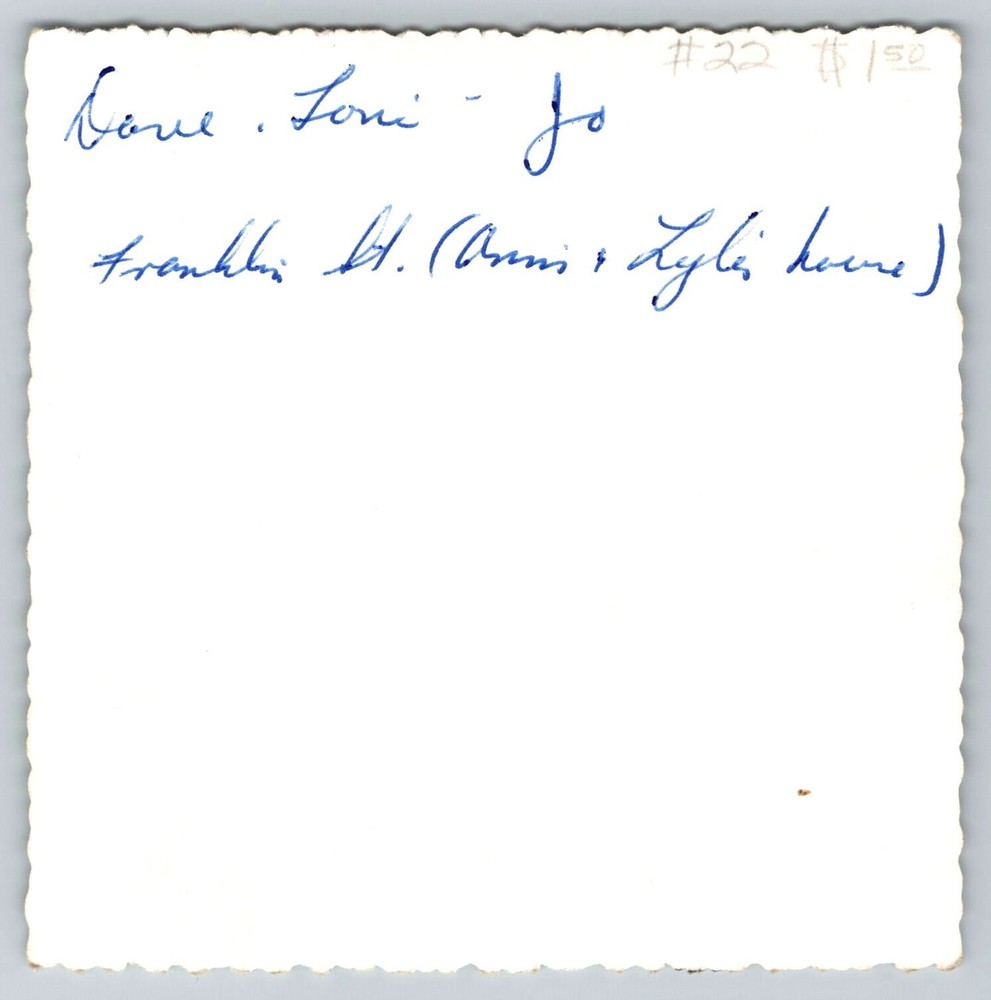 #22 $1.50
Dave. Lori - Jo
Franklin St. (Ann's & Lyle's house)